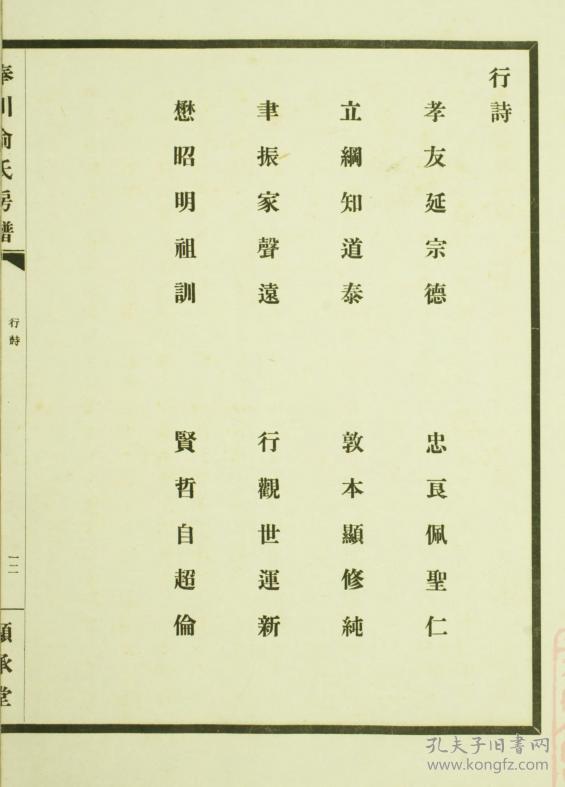 行詩
孝友延宗德 忠良佩聖仁
立綱知道泰 敦本顯修純
聿振家聲遠 行觀世運新
懋昭明祖訓 賢哲自超倫
奉川俞氏房譜
行詩
一二
顯承堂
孔夫子旧书网
www.kongfz.com